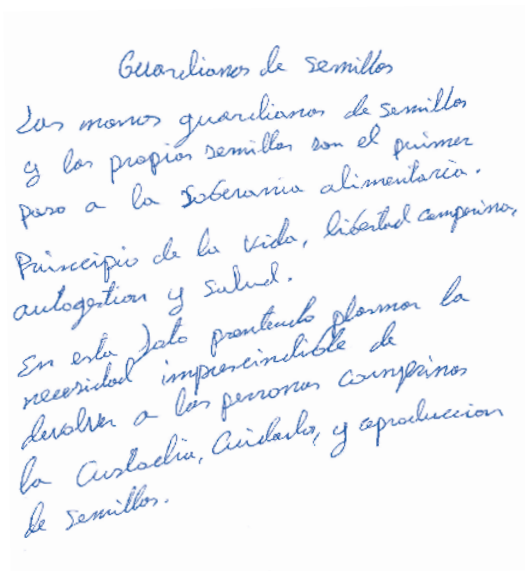 Guardianas de semillas
Las manos guardianas de semillas
y las propias semillas son el primer
paso a la soberania alimentaria.
Principio de la vida, libertad campesina,
autogestion y salud.
En esta foto pretendo plasmar la
necesidad imprescindible de
devolver a las personas campesinas
la custodia, cuidado, y reproduccion
de semillas.